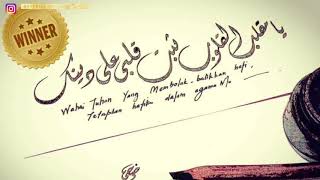 WINNER
يا مقلب القلوب ثبت قلبي على دينك
Wahai Tuhan Yang Membolak-balikkan hati,
Tetapkan hatiku dalam agama-Mu